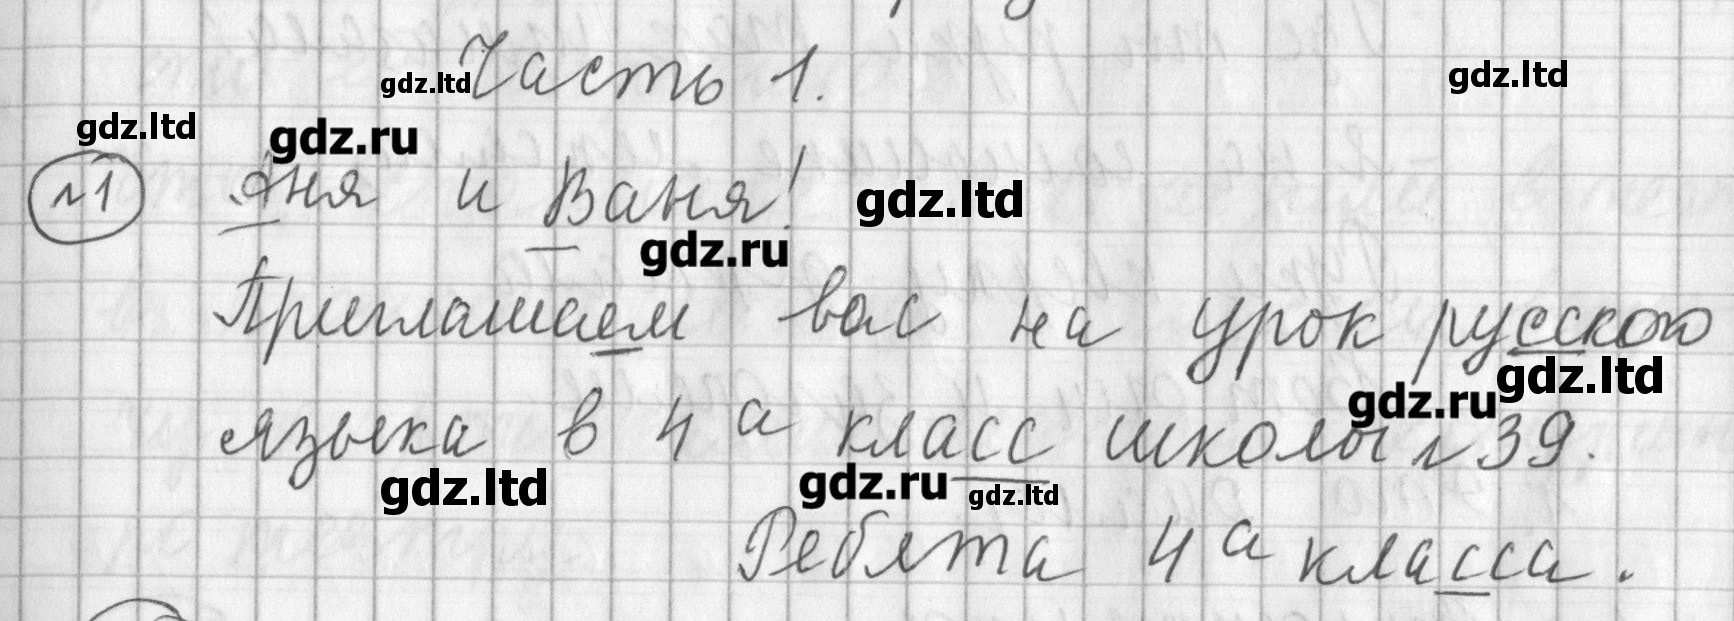 Часть 1.
gdz.ltd
gdz.ltd
gdz.ltd
gdz.ru
№1 Аня и Ваня!
gdz.ltd
gdz.ru
Приглашаем вас на урок русского
gdz.ltd
gdz.ru
языка в 4 а класс школы №39.
gdz.ltd
gdz.ru
gdz.ltd
Ребята 4 а класса.